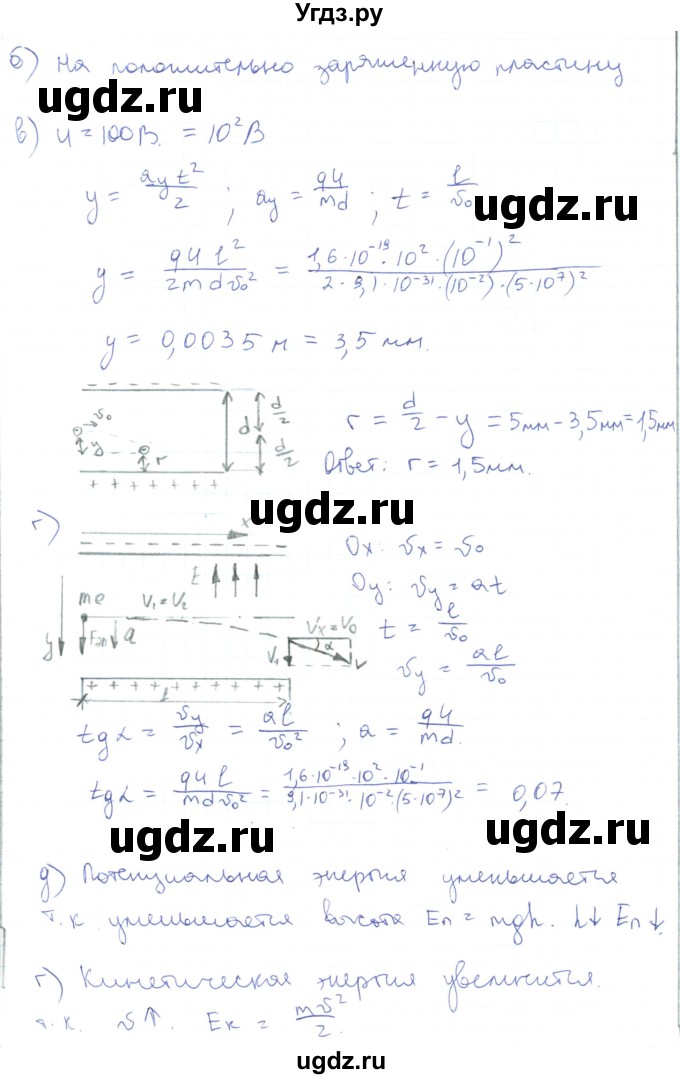 Угдз.ру
б) На положительно заряженную пластину
ugdz.ru
ugdz.ru
в) U = 100 В. = 10² В
y = a_y t² / 2 ; a_y = qU / md ; t = l / v₀
ugdz.ru
y = qUl² / 2mdv₀² = 1,6·10⁻¹⁹·10²·(10⁻¹)² / 2·9,1·10⁻³¹·(10⁻²)·(5·10⁷)²
y = 0,0035 м = 3,5 мм.
v₀ y r d d/2 d/2
r = d/2 - y = 5мм - 3,5мм = 1,5мм
Ответ: r = 1,5мм.
+ + + + + + +
ugdz.ru
г)
x
Ox: v_x = v₀
E
Oy: v_y = at
me V₁=V₂
t = l / v₀
y Fэл a V_x=V₀ α V₁ V
v_y = al / v₀
+ + + + + + + + +
l
tgα = v_y / v_x = al / v₀² ; a = qU / md.
tgα = qUl / mdv₀² = 1,6·10⁻¹⁹·10²·10⁻¹ / 9,1·10⁻³¹·10⁻²·(5·10⁷)² = 0,07.
ugdz.ru
ugdz.ru
д) Потенциальная энергия уменьшается
т.к уменьшается высота Eп = mgh. h↓ Eп↓.
г) Кинетическая энергия увеличится.
т.к. v↑. Eк = mv² / 2.
ugdz.ru